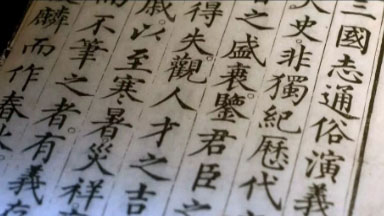 三國志通俗演義
夫史。非獨紀歷代
昔之盛衰。鑒君臣之
得失。觀人才之吉
戚。以至寒暑災祥
而不筆之者。有義存
麟而作春秋。